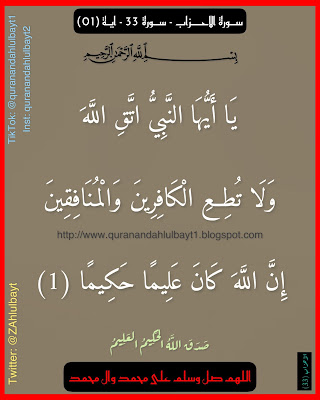 سورة الاحزاب - سورة 33 - آية (01)
بسم الله الرحمن الرحيم
يَا أَيُّهَا النَّبِيُّ اتَّقِ اللَّهَ
وَلَا تُطِعِ الْكَافِرِينَ وَالْمُنَافِقِينَ
http://www.quranandahlulbayt1.blogspot.com
إِنَّ اللَّهَ كَانَ عَلِيمًا حَكِيمًا (1)
صَدَقَ اللَّهُ الْحَكِيمُ الْعَلِيمُ
اللهم صل وسلم على محمد وال محمد
TikTok: @quranandahlulbayt1
Inst: quranandahlulbayt2
Twitter: @ZAhlulbayt
الاحزاب (33)